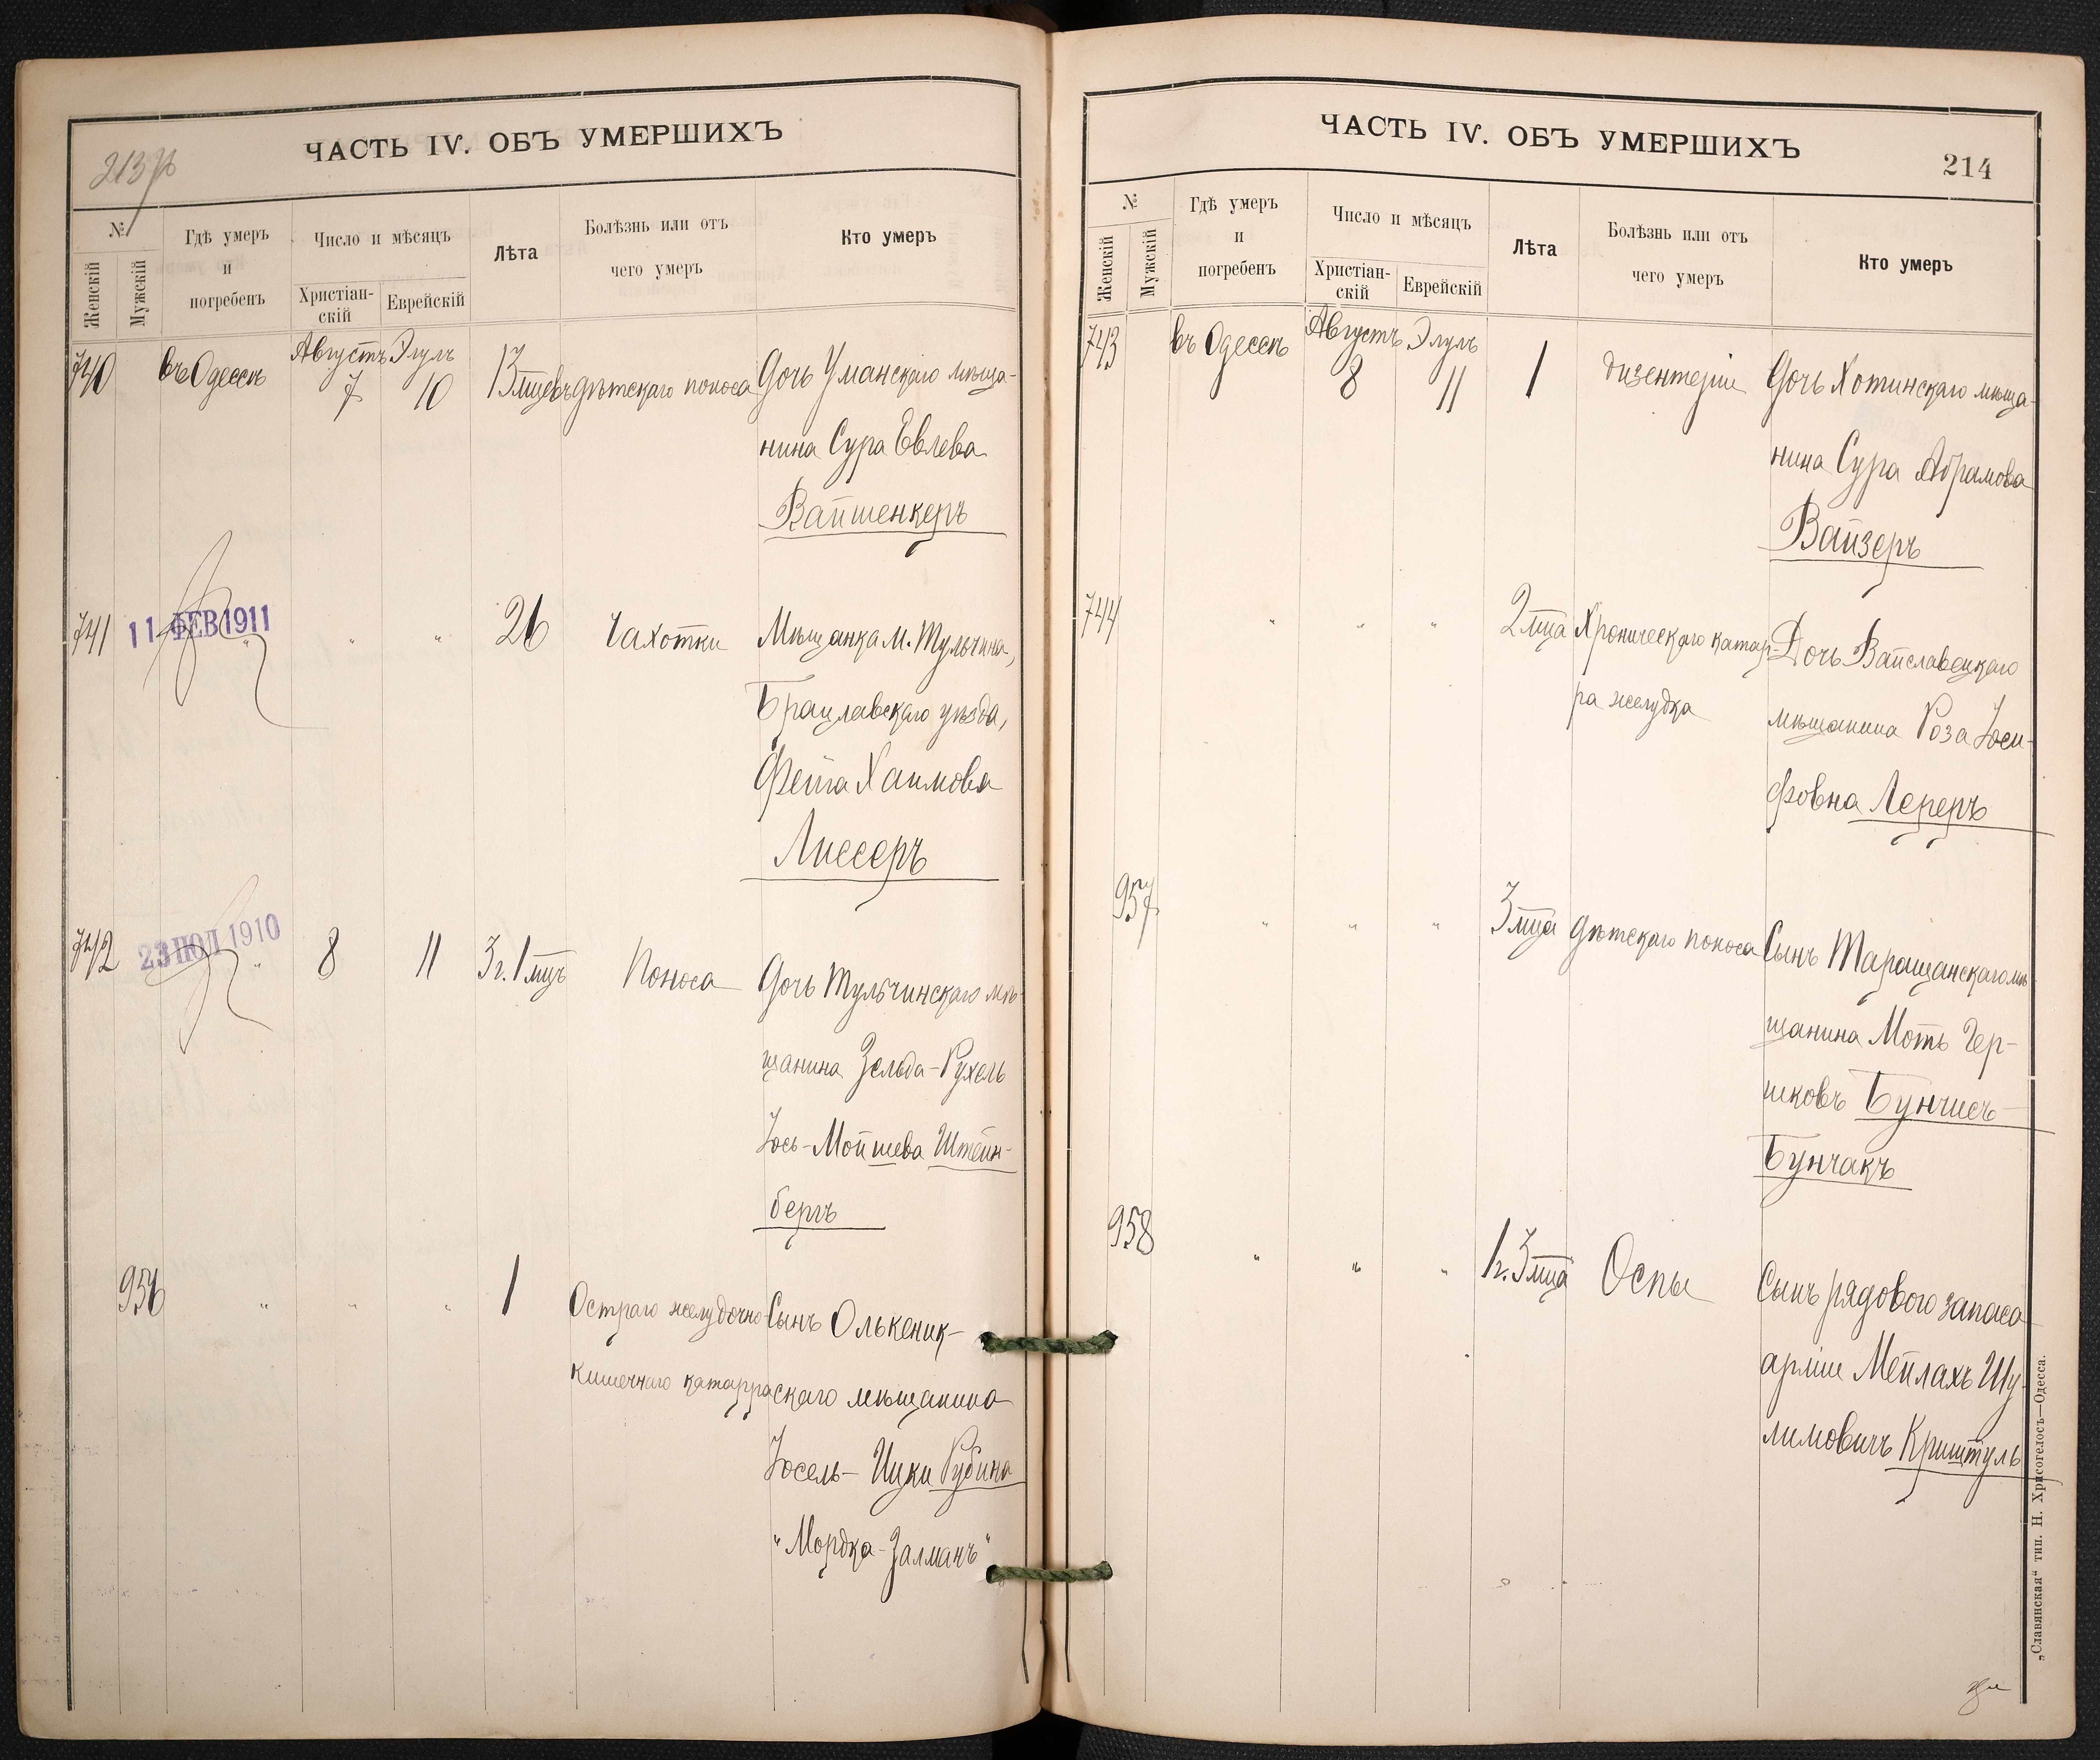 213 
ЧАСТЬ IV. ОБЪ УМЕРШИХЪ
№
Женскій
Мужскій
Гдѣ умеръ
и
погребенъ
Число и мѣсяцъ
Христіан-
скій
Еврейскій
Лѣта
Болѣзнь или отъ
чего умеръ
Кто умеръ
740 въ Одессѣ Августъ 7 Элулъ 10 13 мцевъ дѣтскаго поноса Дочь Уманскаго мѣща-
нина Сура Евлева
Вайшенкеръ
741 11 ФЕВ 1911 " " " 26 Чахотки Мѣщанка м. Тульчина,
Брацлавскаго уѣзда,
Фейга Хаимова
Лиссеръ
742 23 ІЮЛ 1910 " 8 11 3 г. 1 мцъ Поноса Дочь Тульчинскаго мѣ-
щанина Зельда-Рухель
Іось-Мойшева Штейн-
бергъ
956 " " " 1 Остраго желудочно- Сынъ Олькеник-
кишечнаго катарра скаго мѣщанина
Іосель-Ицки Рубина
"Мордка-Залманъ"
ЧАСТЬ IV. ОБЪ УМЕРШИХЪ
214
№
Женскій
Мужскій
Гдѣ умеръ
и
погребенъ
Число и мѣсяцъ
Христіан-
скій
Еврейскій
Лѣта
Болѣзнь или отъ
чего умеръ
Кто умеръ
743 въ Одессѣ Августъ 8 Элулъ 11 1 дизентеріи Дочь Хотинскаго мѣща-
нина Сура Абрамова
Вайзеръ
744 " " " 2 мца Хроническаго катар- Дочь Вайславскаго
ра желудка мѣщанина Роза Іоси-
фовна Лереръ
957 " " " 3 мца дѣтскаго поноса Сынъ Таращанскаго мѣ-
щанина Моть Гер-
шковъ Бунчисъ-
Бунчакъ
958 " " " 1 г. 3 мца Оспы Сынъ рядового запаса
арміи Мейлахъ Шу-
лимовичъ Криштуль
„Славянская“ тип. Н. Хрисогелосъ—Одесса.